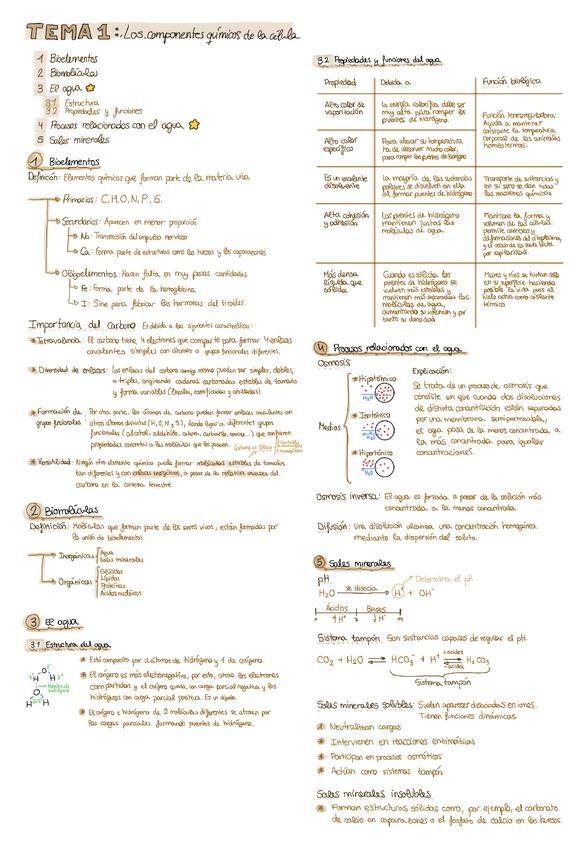 TEMA 1: Los componentes químicos de la célula
1 Bioelementos
2 Biomoléculas
3 El agua
3.1 Estructura
3.2 Propiedades y funciones
4 Procesos relacionados con el agua
5 Sales minerales
1 Bioelementos
Definición: Elementos químicos que forman parte de la materia viva
Primarios: C, H, O, N, P, S.
Secundarios: Aparecen en menor proporción
Na: Transmisión del impulso nervioso
Ca: Forma parte de estructuras como los huesos y los caparazones
Oligoelementos: Hacen falta, en muy pocas cantidades
Fe: Forma parte de la hemoglobina
I: Sirve para fabricar las hormonas del tiroides.
Importancia del carbono Es debido a las siguientes características:
Tetravalencia: El carbono tiene 4 electrones que comparte para formar 4 enlaces
covalentes simples con átomos o grupos funcionales diferentes.
Diversidad de enlaces: Los enlaces del carbono consigo mismo pueden ser simples, dobles,
o triples, originando cadenas carbonadas estables de tamaño
y forma variables (lineales, ramificadas y anilladas)
Formación de grupos funcionales: Por otra parte, los átomos de carbono pueden formar enlaces covalentes con
otros átomos distintos (H, O, N, S), dando lugar a diferentes grupos
funcionales (alcohol, aldehído, cetona, carboxilo, amina...) que confieren
propiedades concretas a las moléculas que los poseen.
Versatilidad: Ningún otro elemento químico puede formar moléculas estables de tamaños
tan diferentes y con enlaces energéticos, a pesar de la relativa escasez del
carbono en la corteza terrestre.
2 Biomoléculas
Definición: Moléculas que forman parte de los seres vivos, están formadas por
la unión de bioelementos
Inorgánicas
Agua
Sales minerales
Orgánicas
Glúcidos
Lípidos
Proteínas
Ácidos nucleicos
3 El agua
3.1 Estructura del agua
Puentes de hidrógeno
Está compuesto por 2 átomos de hidrógeno y 1 de oxígeno.
El oxígeno es más electronegativo, por esto, atrae los electrones
compartidos y el oxígeno queda con carga parcial negativa y los
hidrógenos con carga parcial positiva. Es un dipolo
El oxígeno e hidrógeno de 2 moléculas diferentes se atraen por
las cargas parciales formando puentes de hidrógeno.
3.2 Propiedades y funciones del agua
Propiedad Debida a: Función biológica
Alto calor de vaporización
La energía calorífica debe ser
muy alta para romper los
puentes de hidrógeno
Función termorreguladora:
Ayuda a mantener
constante la temperatura
corporal de los animales
homeotermos.
Alto calor específico
Para elevar su temperatura
ha de absorber mucho calor,
para romper los puentes de hidrógeno
Es un excelente disolvente
La mayoría de las sustancias
polares se disuelven en ella
al formar puentes de hidrógeno
Transporte de sustancias y
en su seno se dan todas
las reacciones químicas
Alta cohesión y adhesión
Los puentes de hidrógeno
mantienen juntas las
moléculas de agua.
Mantiene la forma y
volumen de las células,
permite cambios y
deformaciones del citoplasma,
y el ascenso de la savia bruta
por capilaridad.
Más densa líquida que sólida
Cuando es sólida, los
puentes de hidrógeno se
vuelven más estables y
mantienen más separadas las
moléculas de agua,
aumentando su volumen y por
tanto su densidad
Mares y ríos se hielan solo
en su superficie haciendo
posible la vida pues el
hielo actúa como aislante
térmico
4 Procesos relacionados con el agua
Osmosis
Medios
Hipotónico
H₂O
Isotónico
H₂O
Hipertónico
H₂O
Explicación:
Se trata de un proceso de osmosis que
consiste en que cuando dos disoluciones
de distinta concentración están separadas
por una membrana semipermeable,
el agua pasa de la menos concentrada a
la más concentrada para igualar
concentraciones.
Osmosis inversa: El agua es forzada a pasar de la solución más
concentrada a la menos concentrada.
Difusión: Una disolución alcanza una concentración homogénea
mediante la dispersión del soluto.
5 Sales minerales
pH
Determina el pH
H₂O se disocia H⁺ + OH⁻
Ácidos Bases
Sistema tampón Son sustancias capaces de regular el pH.
CO₂ + H₂O ⇌ HCO₃⁻ + H⁺ +ácidos -ácidos H₂CO₃
Sistema tampón
Sales minerales solubles: Suelen aparecer disociadas en iones.
Tienen funciones dinámicas
Neutralizan cargas
Intervienen en reacciones enzimáticas
Participan en procesos osmóticos
Actúan como sistemas tampón
Sales minerales insolubles
Forman estructuras sólidas como, por ejemplo, el carbonato
de calcio en caparazones o el fosfato de calcio en los huesos.